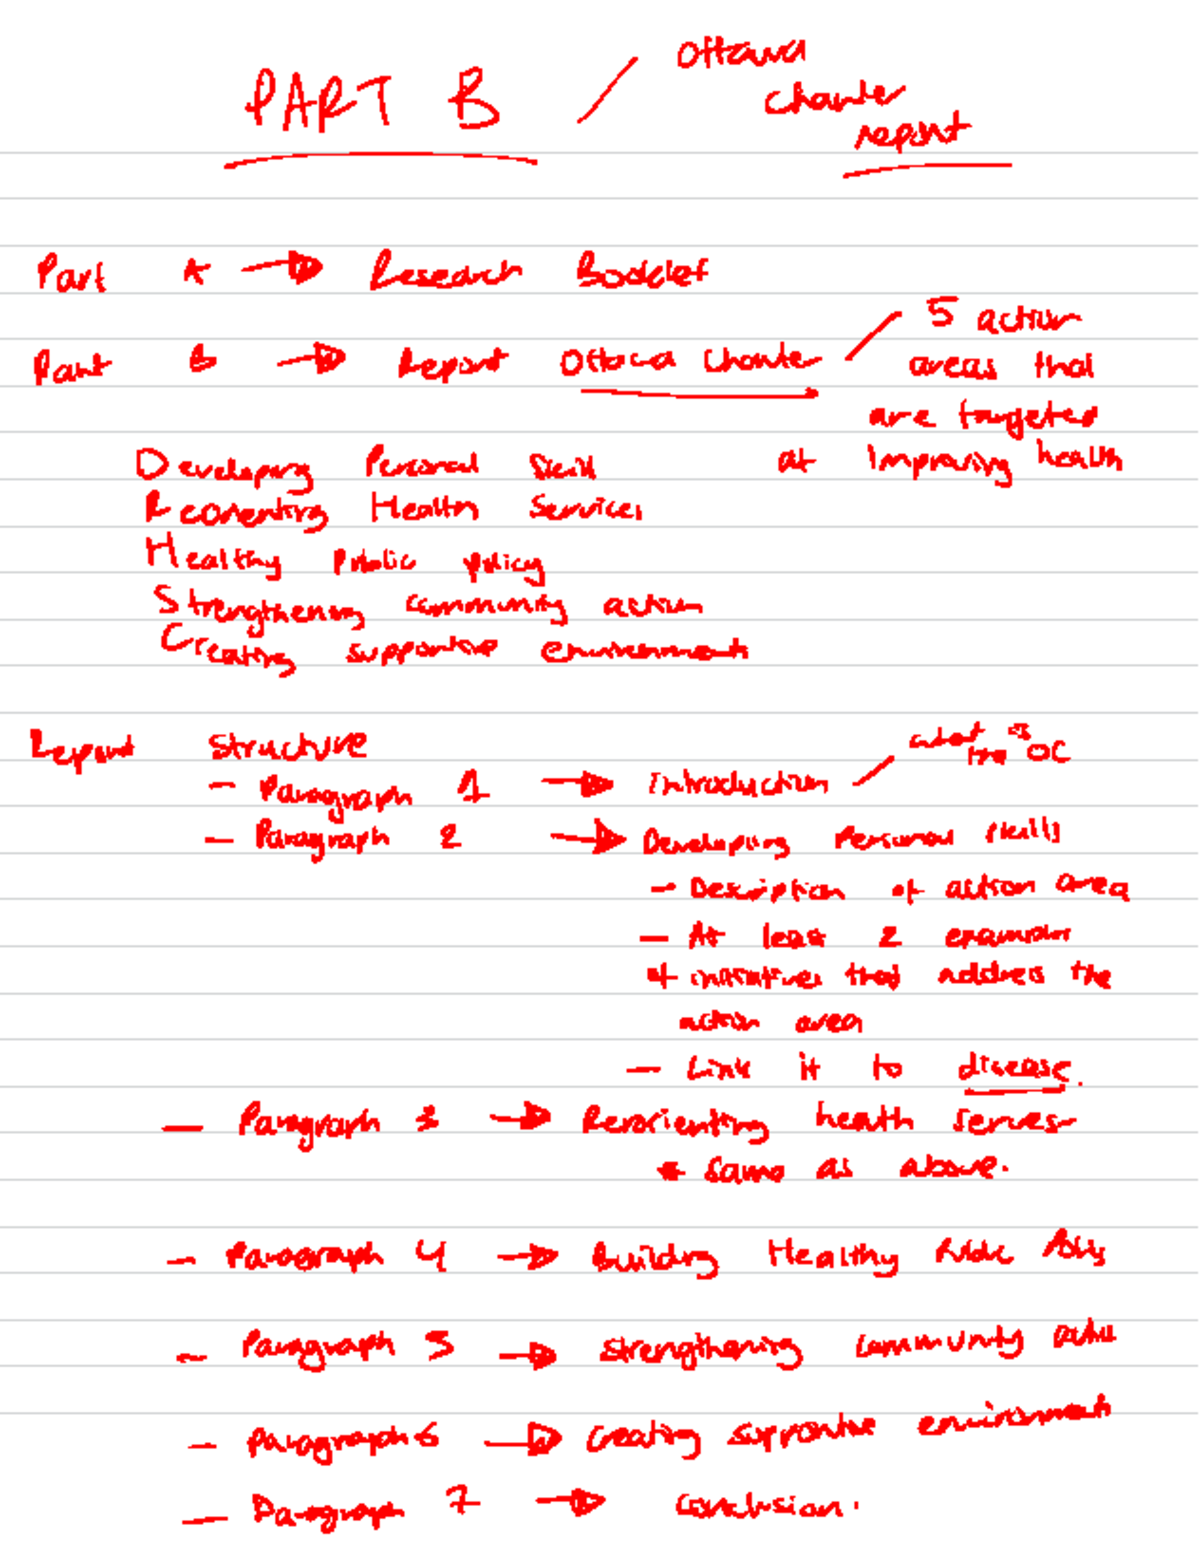 PART B / Ottawa
charter
report
Part A → Research Booklet
Part B → Report Ottawa Charter / 5 action
areas that
are targeted
at improving health
Developing Personal Skill
Reorienting Health Services
Healthy public policy
Strengthening community action
Creating supportive environments
Report structure
- Paragraph 1 → Introduction / what is
the OC
- Paragraph 2 → Developing Personal skills
- Description of action area
- At least 2 examples
of initiatives that address the
action area
- Link it to disease.
- Paragraph 3 → Reorienting health
* same as above.
- Paragraph 4 → Building Healthy Public Policy
- Paragraph 5 → Strengthening community action
- Paragraph 6 → Creating supportive environments
- Paragraph 7 → Conclusion.